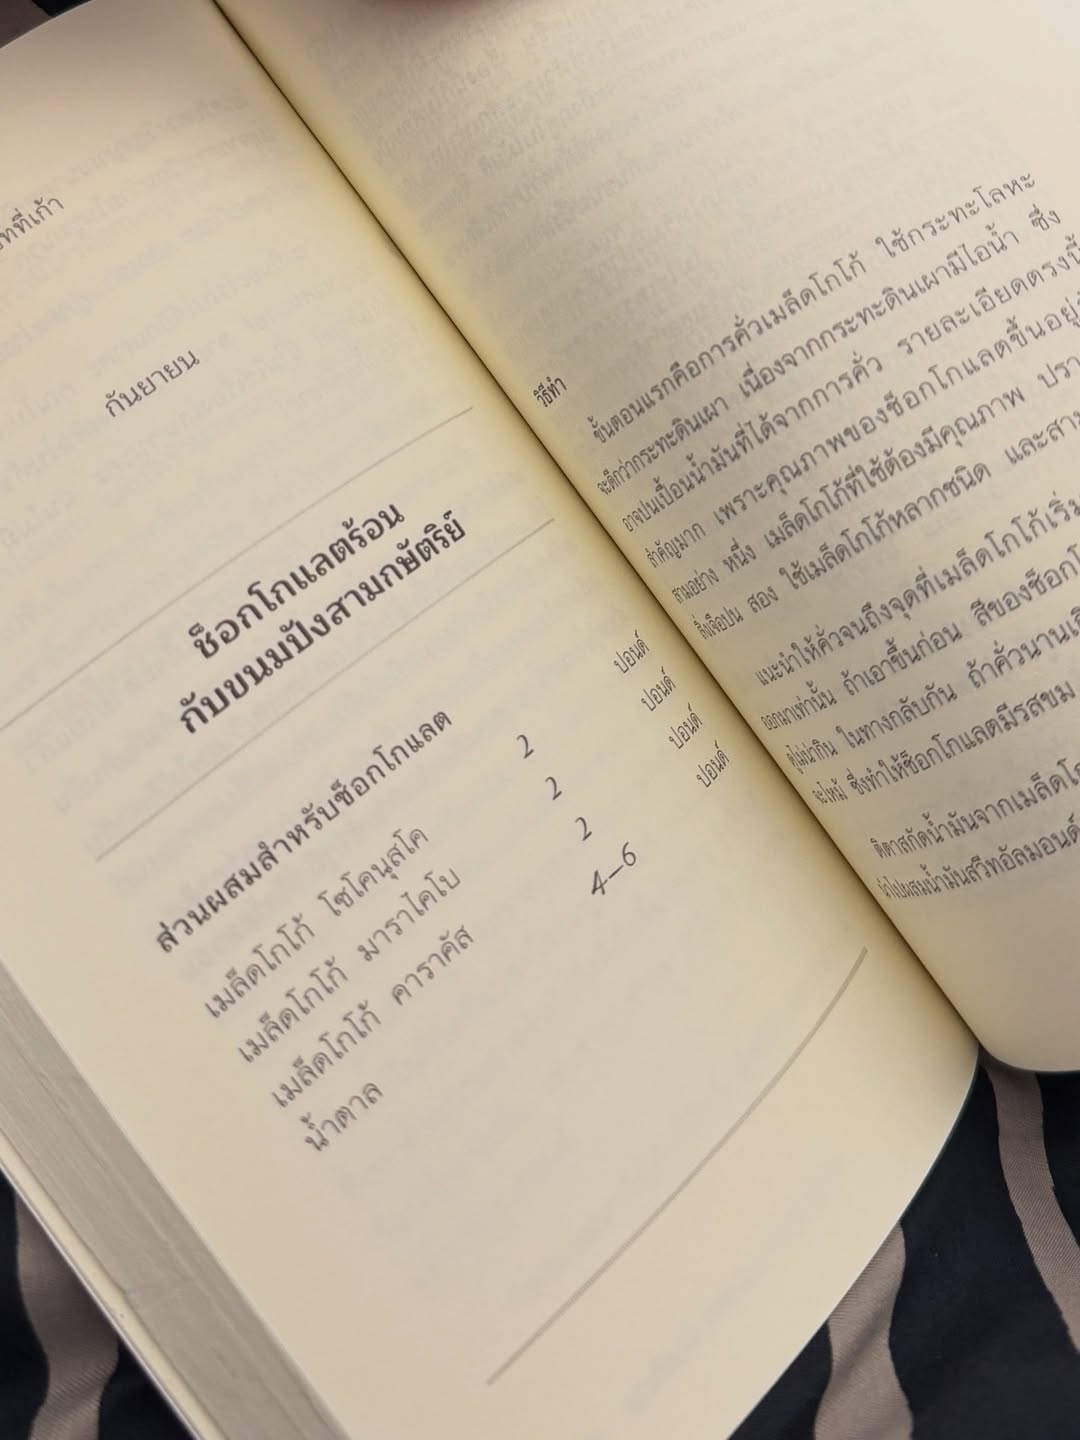 ที่เก้า
กันยายน
ช็อกโกแลตร้อน
กับขนมปังสามกษัตริย์
ส่วนผสมสำหรับช็อกโกแลต
เมล็ดโกโก้ โซโคนุสโค 2 ปอนด์
เมล็ดโกโก้ มาราไคโบ 2 ปอนด์
เมล็ดโกโก้ คาราคัส 2 ปอนด์
น้ำตาล 4–6 ปอนด์
วิธีทำ
ขั้นตอนแรกคือการคั่วเมล็ดโกโก้ ใช้กระทะโลหะ
จะดีกว่ากระทะดินเผา เนื่องจากกระทะดินเผามีไอน้ำ ซึ่ง
อาจปนเปื้อนน้ำมันที่ได้จากการคั่ว รายละเอียดตรงนี้
สำคัญมาก เพราะคุณภาพของช็อกโกแลตขึ้นอยู่
สามอย่าง หนึ่ง เมล็ดโกโก้ที่ใช้ต้องมีคุณภาพ
สิ่งเจือปน สอง ใช้เมล็ดโกโก้หลากชนิด และสาม
แนะนำให้คั่วจนถึงจุดที่เมล็ดโกโก้เริ่ม
ออกมาเท่านั้น ถ้าเอาขึ้นก่อน สีของช็อกโก
ดูไม่น่ากิน ในทางกลับกัน ถ้าคั่วนานเกิ
จะไหม้ ซึ่งทำให้ช็อกโกแลตมีรสขม
ติตาสกัดน้ำมันจากเมล็ดโก
นำไปผสมน้ำมันสวีทอัลมอนด์